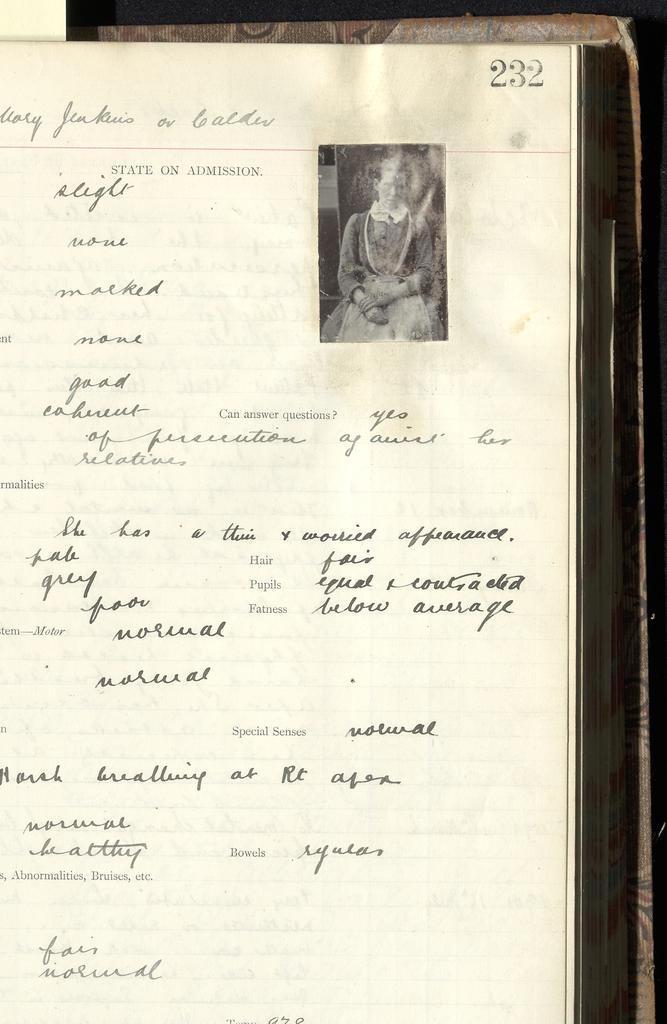 232
Mary Jenkins or Calder
STATE ON ADMISSION.
slight
none
marked
nt none
good
coherent Can answer questions? yes
of persecution against her
relatives
rmalities
She has a thin & worried appearance.
pale Hair fair
grey Pupils equal & contracted
poor Fatness below average
stem—Motor normal
normal
n Special Senses normal
Harsh breathing at Rt apex
normal
healthy Bowels regular
s, Abnormalities, Bruises, etc.
fair
normal
Temp.